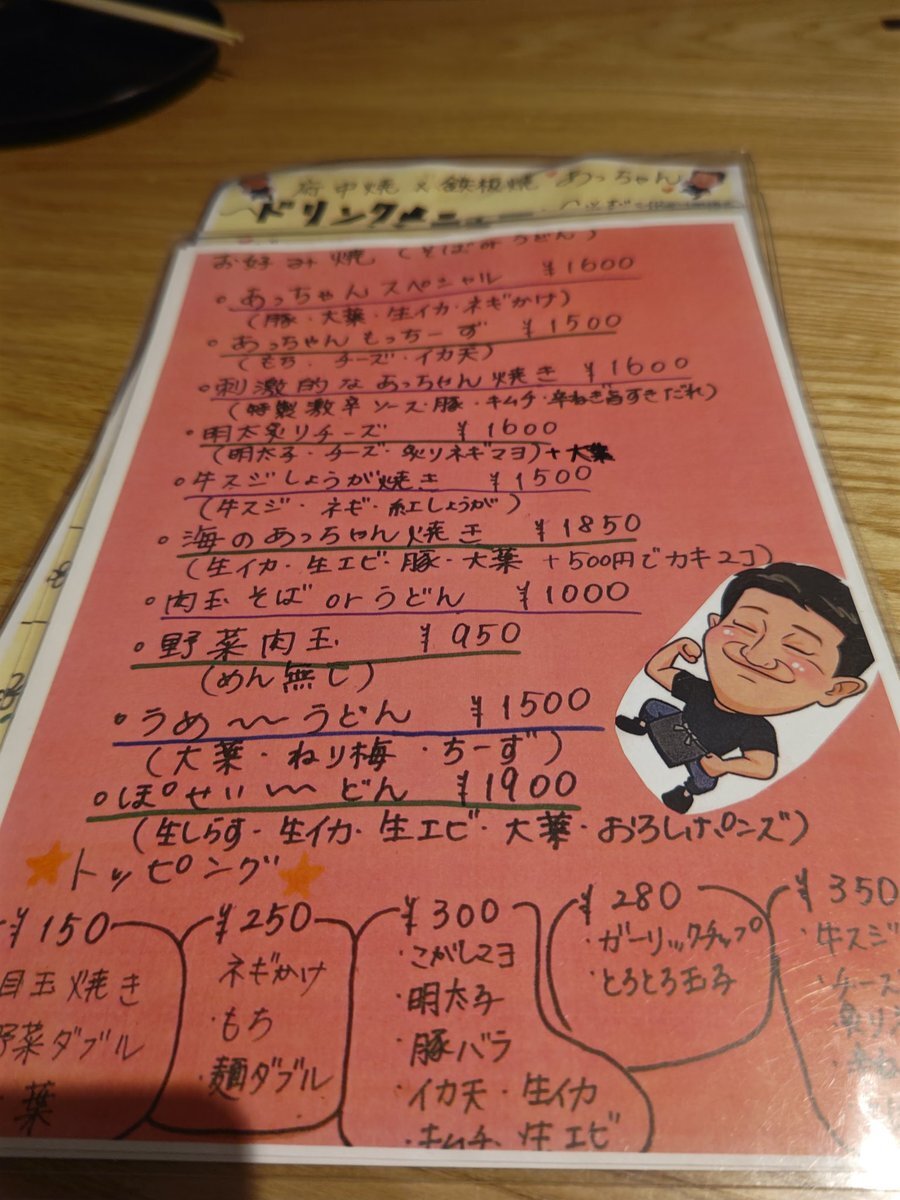 府中焼×鉄板焼 あっちゃん
ドリンクメニュー
お好み焼 (そばorうどん)
・あっちゃんスペシャル ¥1600
(豚・大葉・生イカ・ネギかけ)
・あっちゃんもっちーず ¥1500
(もち・チーズ・イカ天)
・刺激的なあっちゃん焼き ¥1600
(特製激辛ソース・豚・キムチ・辛ねぎ旨すきだれ)
・明太炙りチーズ ¥1600
(明太子・チーズ・炙りネギマヨ)+大葉
・牛スジしょうが焼き ¥1500
(牛スジ・ネギ・紅しょうが)
・海のあっちゃん焼き ¥1850
(生イカ・生エビ・豚・大葉 +500円でカキ2コ)
・肉玉そばorうどん ¥1000
・野菜肉玉 ¥950
(めん無し)
・うめ〜〜うどん ¥1500
(大葉・ねり梅・ちーず)
・ぽせい〜〜どん ¥1900
(生しらす・生イカ・生エビ・大葉・おろしポンズ)
トッピング
¥150
目玉焼き
野菜ダブル
葉
¥250
ネギかけ
・もち
・麺ダブル
¥300
・こがしマヨ
・明太子
・豚バラ
・イカ天・生イカ
・キムチ・生エビ
¥280
・ガーリックチップ
・とろとろ玉子
¥350
・牛スジ
・チーズ